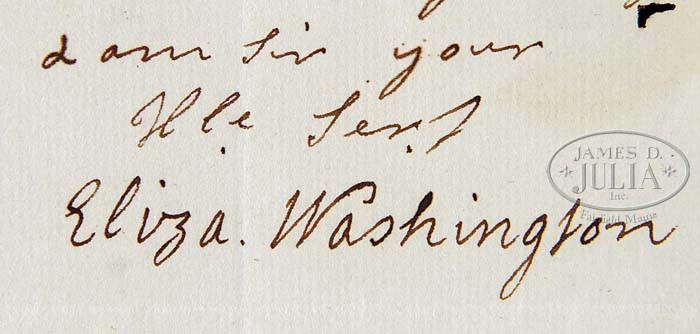 I am Sir your
Hle Servt
Eliza. Washington
JAMES D.
JULIA
Inc.
Fairfield, Maine